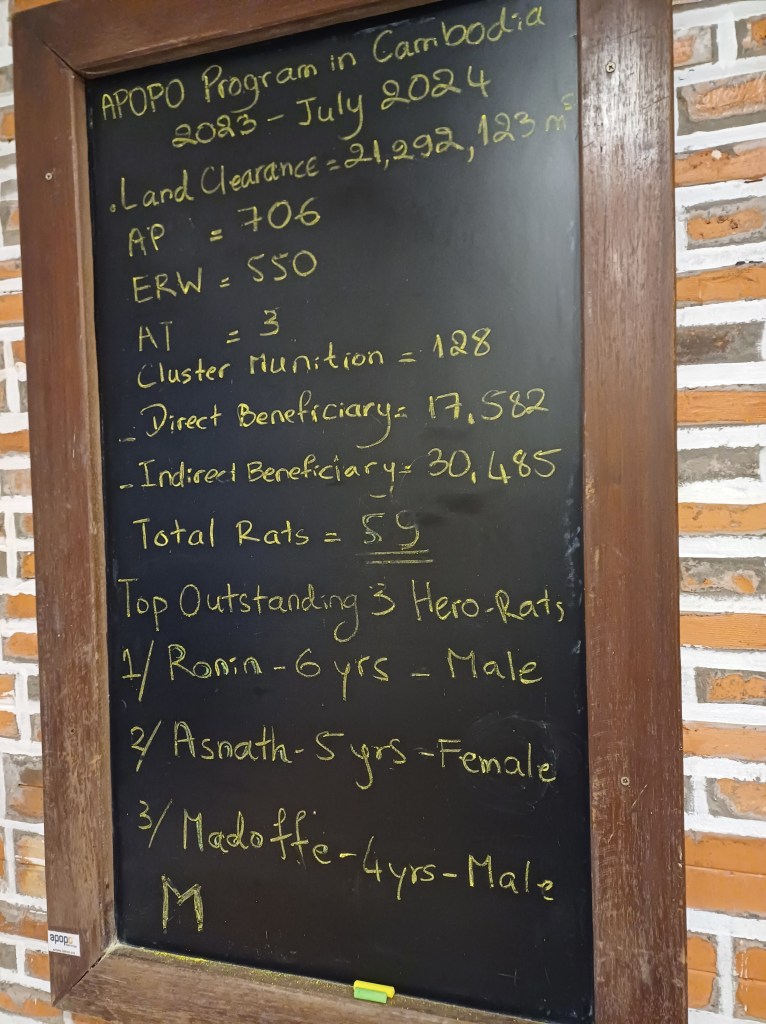 APOPO Program in Cambodia
2023 - July 2024
. Land Clearance = 21,292,123 m²
AP = 706
ERW = 550
AT = 3
Cluster Munition = 128
- Direct Beneficiary = 17.582
- Indirect Beneficiary = 30.485
Total Rats = 59
Top Outstanding 3 Hero-Rats
1/ Ronin - 6 yrs - Male
2/ Asnath - 5 yrs - Female
3/ Madoffe - 4 yrs - Male
M
apopo